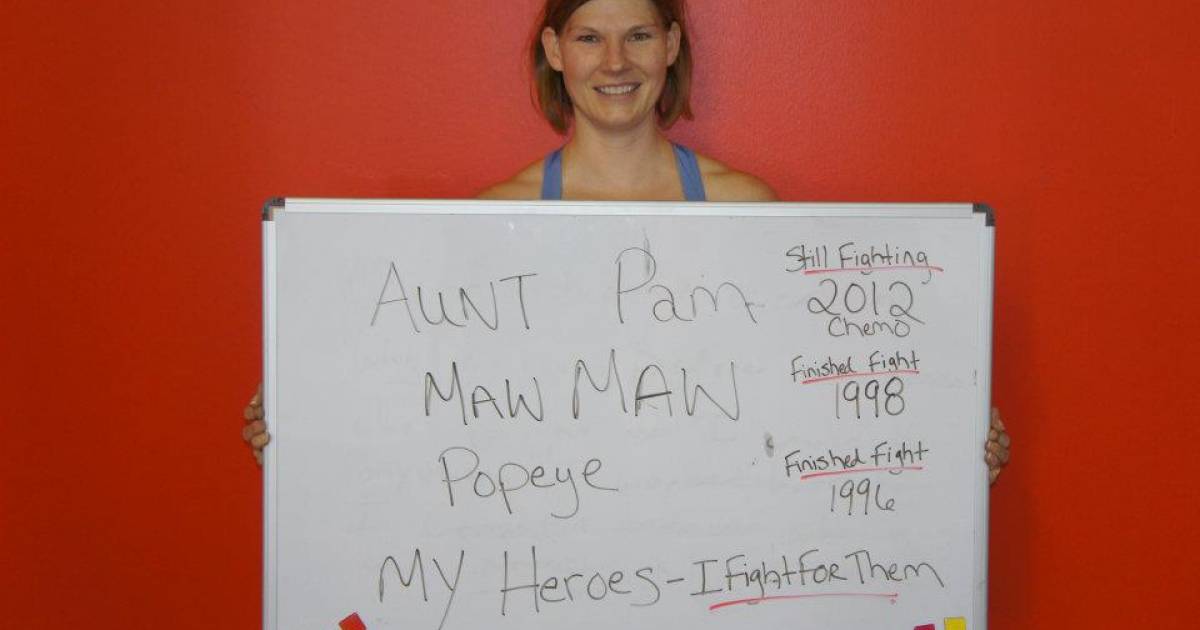 AUNT Pam Still Fighting
2012
Chemo
MAW MAW Finished Fight
1998
Popeye Finished Fight
1996
MY Heroes - I Fight For Them